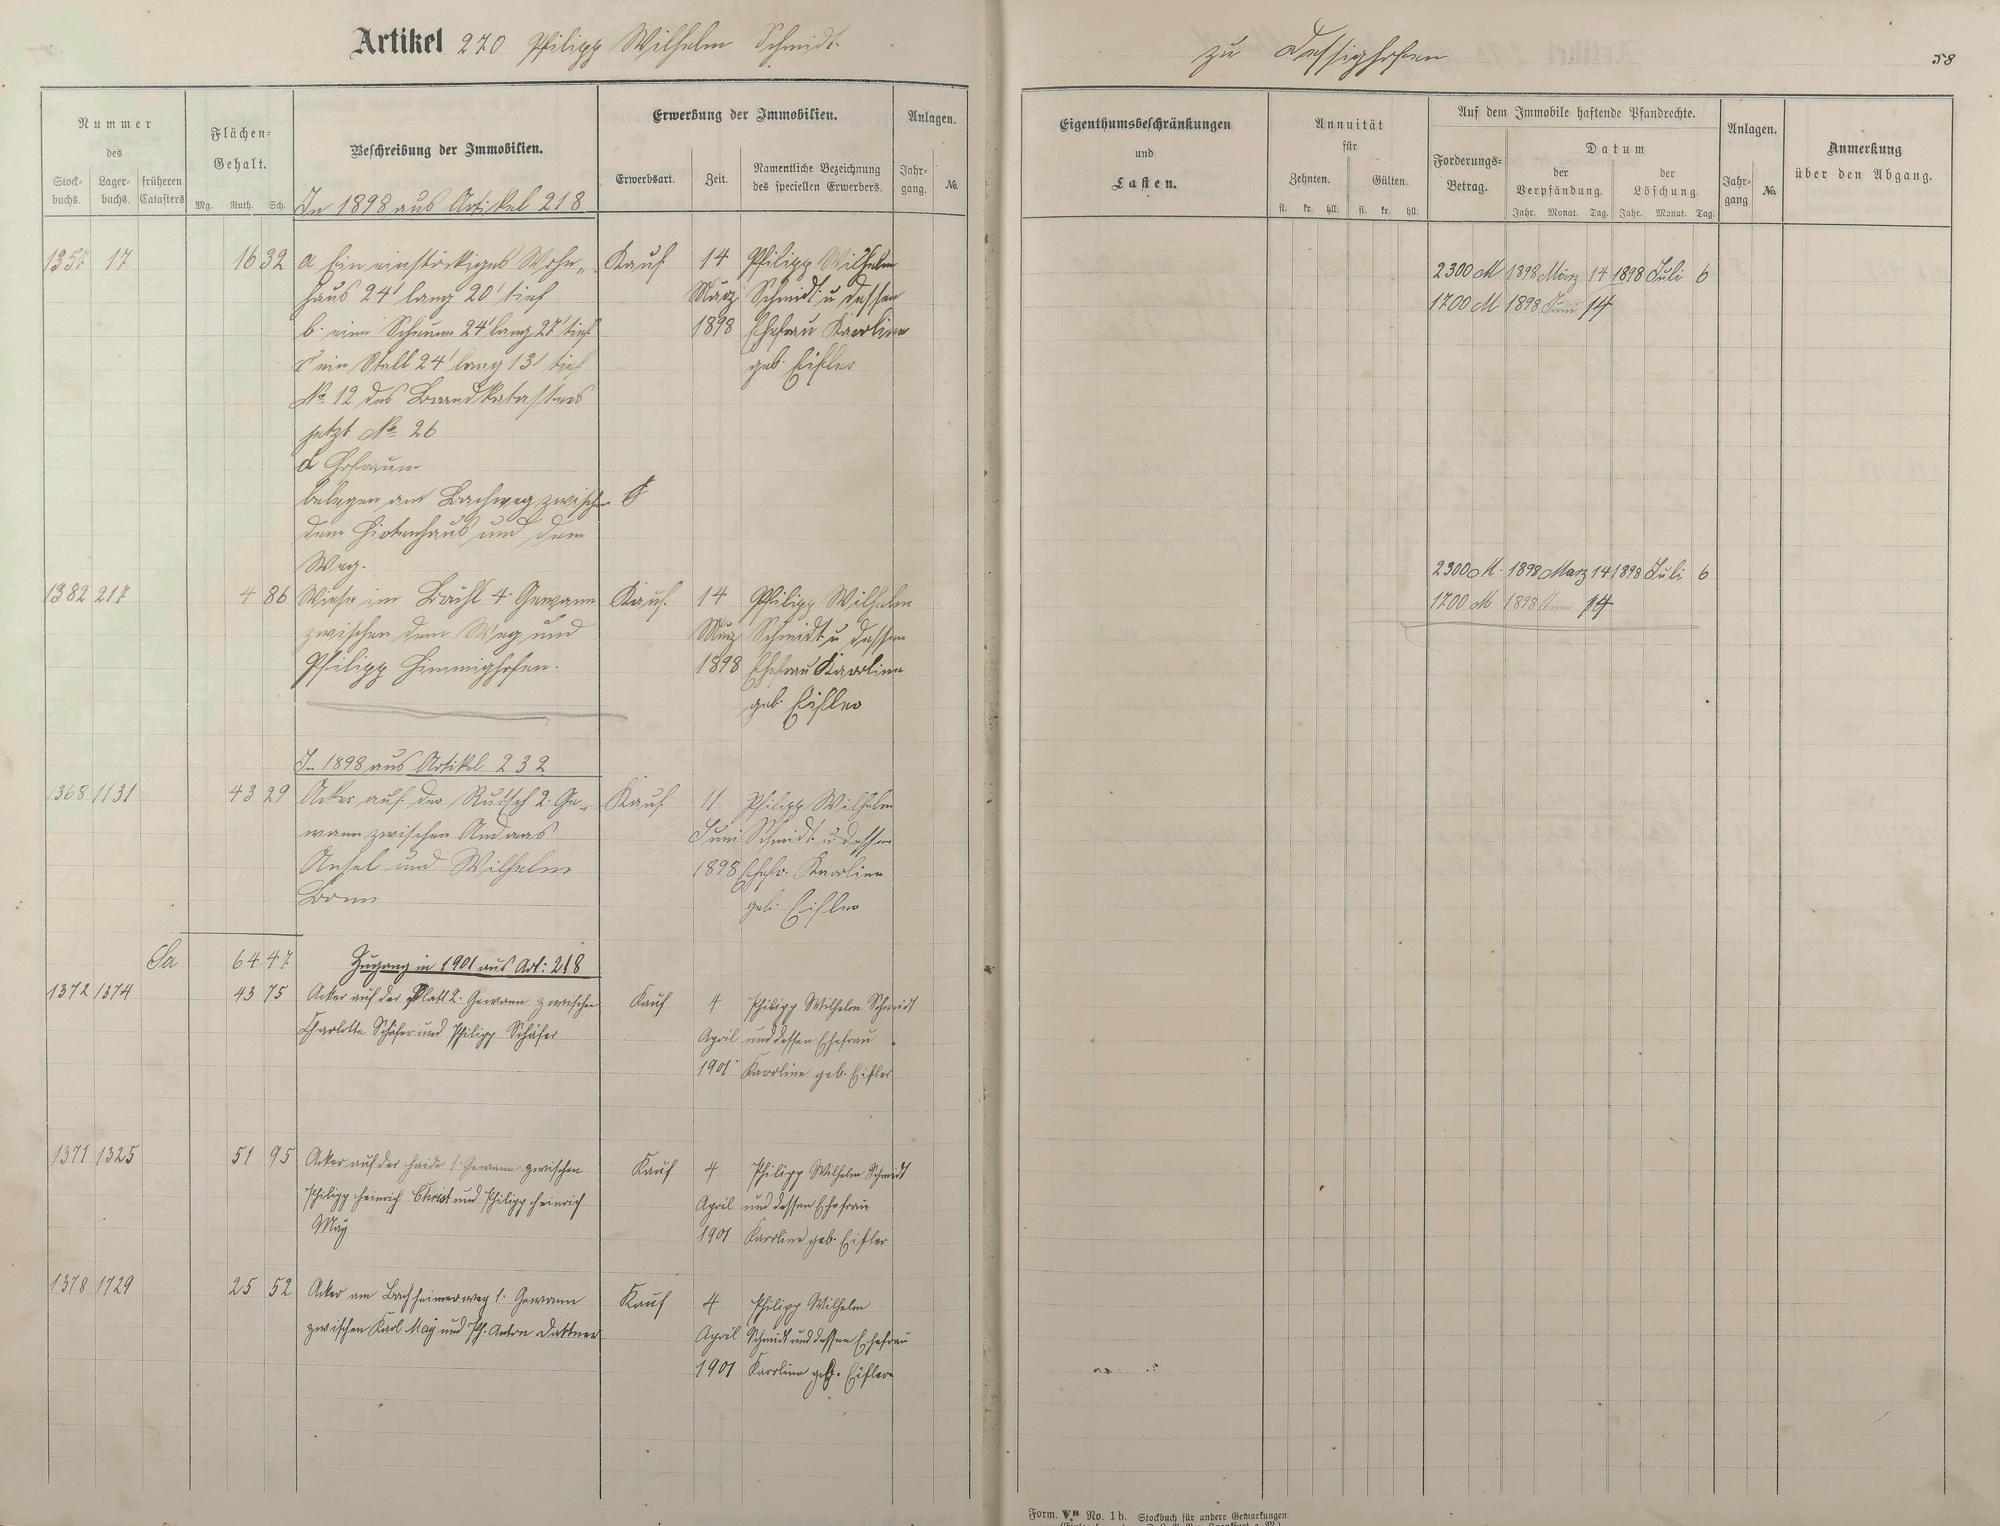 Artikel 270 Philipp Wilhelm Schmidt.
zu Dessighofen
58
Nummer
des
Stock-
buchs.
Lager-
buchs.
früheren
Catasters
Flächen-
Gehalt.
Mg. Ruth. Sch.
Beschreibung der Immobilien.
In 1898 aus Artikel 218
Erwerbung der Immobilien.
Erwerbsart.
Zeit.
Namentliche Bezeichnung
des speciellen Erwerbers.
Anlagen.
Jahr-
gang.
No.
1357 17 16 32 a Ein einstöckiges Wohn„ Kauf 14 Philipp Wilhelm
haus 24' lang 20' tief März Schmidt u dessen
b. eine Scheune 24' lang 27' tief 1898 Ehefrau Karoline
c ein Stall 24' lang 13' tief geb. Eisler
No 12 des Brandkatasters
jetzt No 26
d Hofraum
belegen am Bachweg zwischen
dem Hirtenhaus und dem
Weg.
1382 217 4 86 Wiese im Bächl 4. Gewann Kauf. 14 Philipp Wilhelm
zwischen dem Weg und März Schmidt u dessen
Philipp Himmighofen. 1898 Ehefrau Karoline
geb. Eisler
In 1898 aus Artikel 232
1368 1131 43 29 Acker auf der Rutsch 2. Ge„ Kauf 11 Philipp Wilhelm
wann zwischen Andreas Juni Schmidt u dessen
Ansel und Wilhelm 1898 Ehefr. Karoline
Bonn geb. Eisler
Sa 64 47 Zugang in 1901 aus Art: 218
1372 1374 43 75 Acker auf der Platt 2. Gewann zwischen Kauf 4 Philipp Wilhelm Schmidt
Charlotte Schäfer und Philipp Schäfer April und dessen Ehefrau
1901 Karoline geb. Eisler
1371 1325 51 95 Acker auf der Haide 1. Gewann zwischen Kauf 4 Philipp Wilhelm Schmidt
Philipp Heinrich Christ und Philipp Heinrich April und dessen Ehefrau
May 1901 Karoline geb. Eisler
1378 1729 25 52 Acker am Bachheimerweg 1. Gewann Kauf 4 Philipp Wilhelm
zwischen Karl May und Ph. Anton Dattner April Schmidt und dessen Ehefrau
1901 Karoline geb. Eisler
Eigenthumsbeschränkungen
und
Lasten.
Annuität
für
Zehnten.
Gülten.
fl. kr. hll. fl. kr. hll.
Auf dem Immobile haftende Pfandrechte.
Forderungs-
Betrag.
Datum
der
Verpfändung.
der
Löschung.
Jahr. Monat. Tag. Jahr. Monat. Tag.
Anlagen.
Jahr-
gang
No.
Anmerkung
über den Abgang.
2300 M 1898 März 14 1898 Juli 6
1700 M 1898 Juni 14
2300 M. 1898 März 14 1898 Juli 6
1700 M 1898 Juni 14
Form. No. 1b. Stockbuch für andere Gemarkungen.